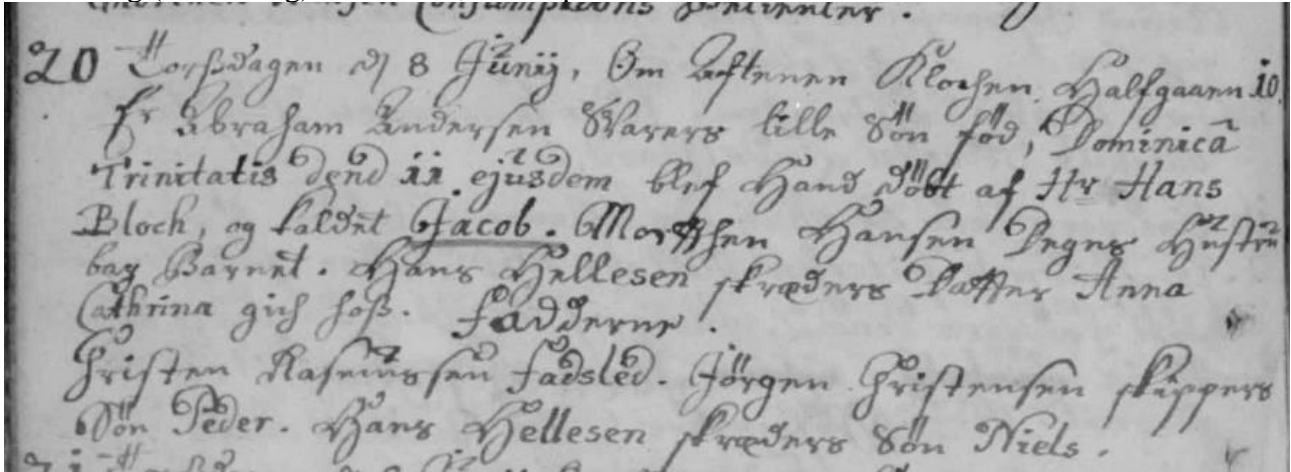 Consumptions Betienter.
20 Torßdagen dj 8 Junij, Om Aftenen Klochen Halfgaaen 10.
Er Abraham Andersen Svarers lille Søn fød, Dominica
Trinitatis dend 11 ejusdem blef Hand døbt af Hr Hans
Bloch, og kaldet Jacob. Morthen Hansen Degns Hustru
bar Barnet. Hans Hellesen skræders Datter Anna
Cathrina gich hoß. Fadderne.
Christen Rasmussen Fadsled. Jørgen Christensen skippers
Søn Peder. Hans Hellesen skræders Søn Niels.